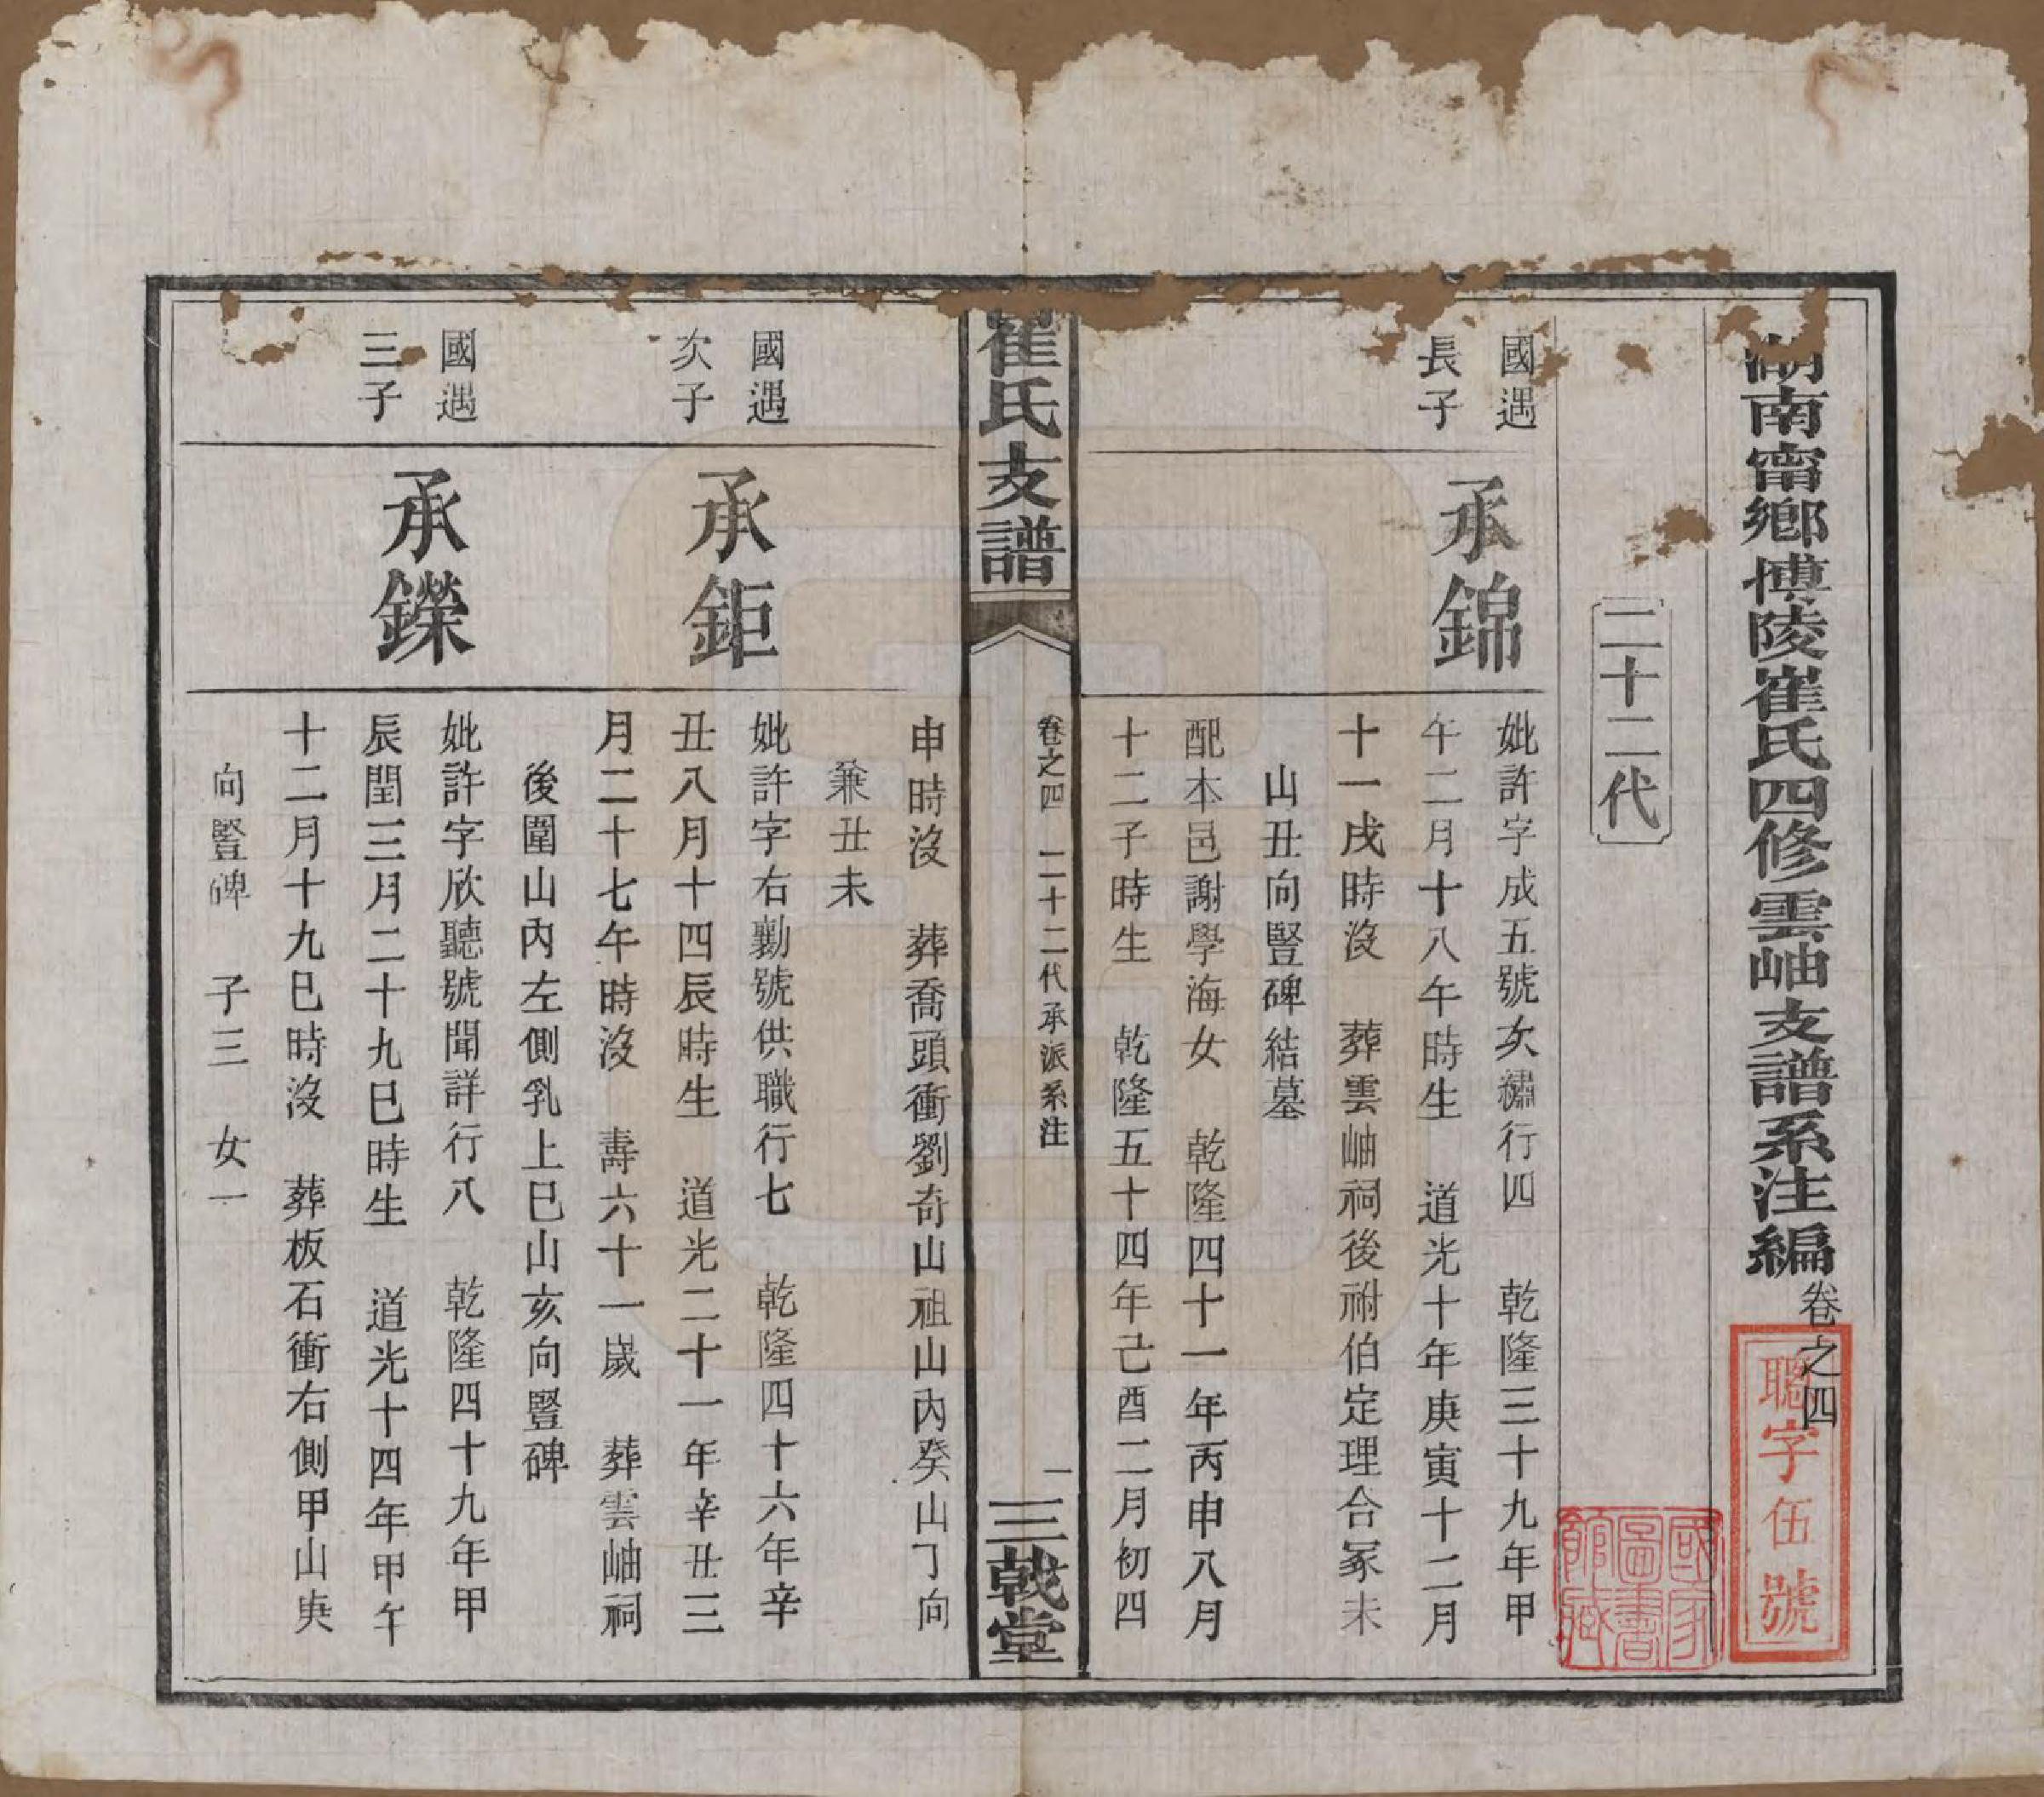 湖南甯鄉博陵崔氏四修雲岫支譜系注編卷之四
聰字伍號
國家圖書館藏
二十二代
國遇
長子
承錦
妣許字成五號友繡行四 乾隆三十九年甲
午二月十八午時生 道光十年庚寅十二月
十一戌時沒 葬雲岫祠後祔伯定理合冢未
山丑向豎碑結墓
配本邑謝學海女 乾隆四十一年丙申八月
十二子時生 乾隆五十四年己酉二月初四
崔氏支譜
卷之四 二十二代承派系注
一
三戟堂
申時沒 葬喬頭衝劉奇山祖山內癸山丁向
兼丑未
國遇
次子
承鉅
妣許字右勷號供職行七 乾隆四十六年辛
丑八月十四辰時生 道光二十一年辛丑三
月二十七午時沒 壽六十一歲 葬雲岫祠
後圍山內左側乳上巳山亥向豎碑
國遇
三子
承鑅
妣許字欣聽號聞詳行八 乾隆四十九年甲
辰閏三月二十九巳時生 道光十四年甲午
十二月十九巳時沒 葬板石衝右側甲山庚
向豎碑 子三 女一